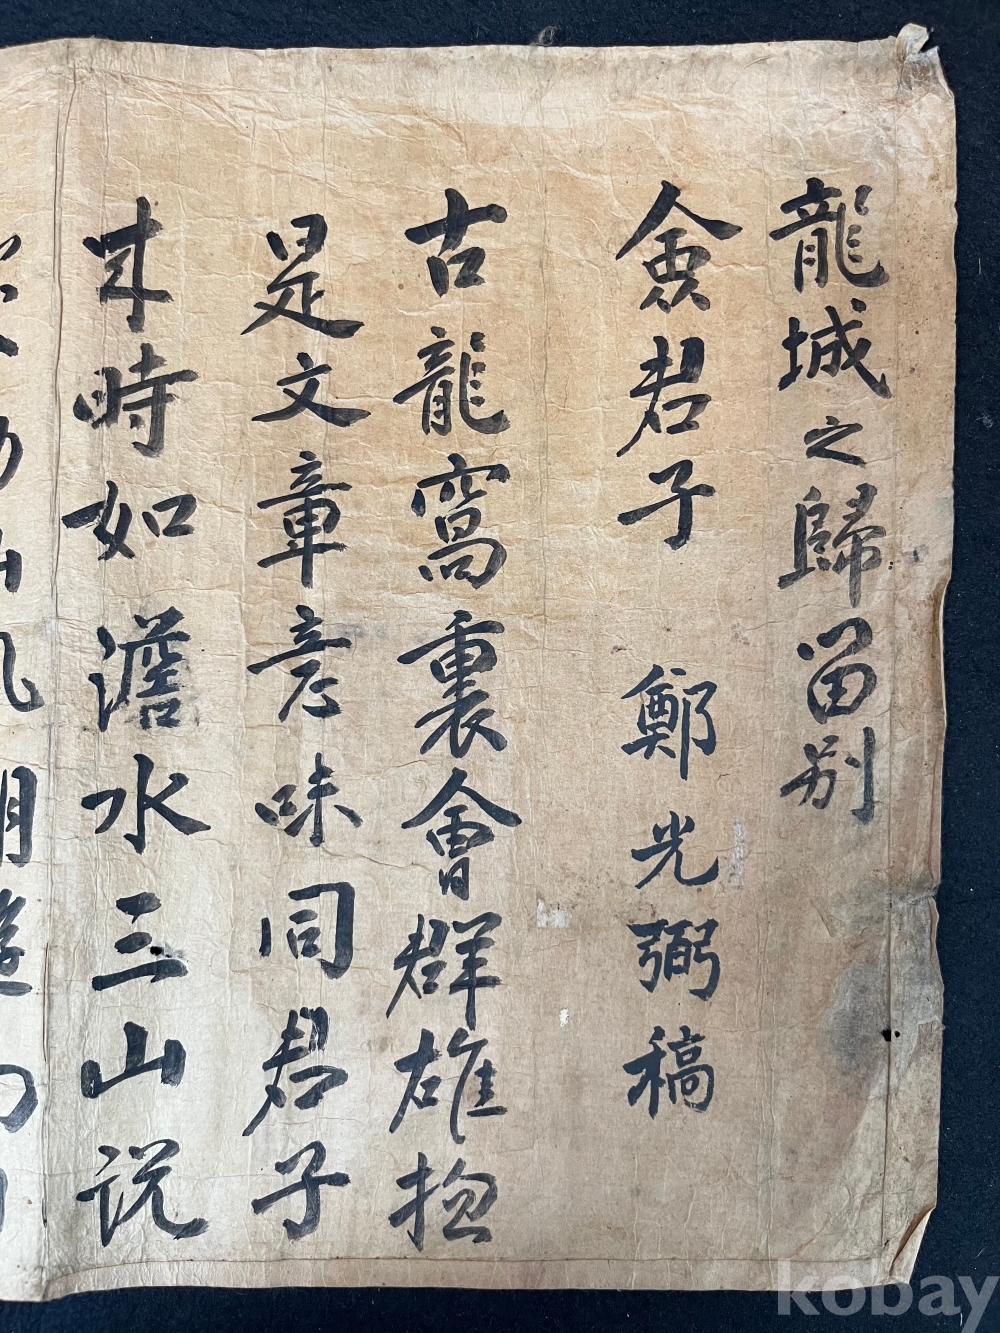 龍城之歸留別
僉君子 鄭光弼稿
古龍窩裏會群雄揔
是文章意味同君子
來時如澹水三山説
kobay